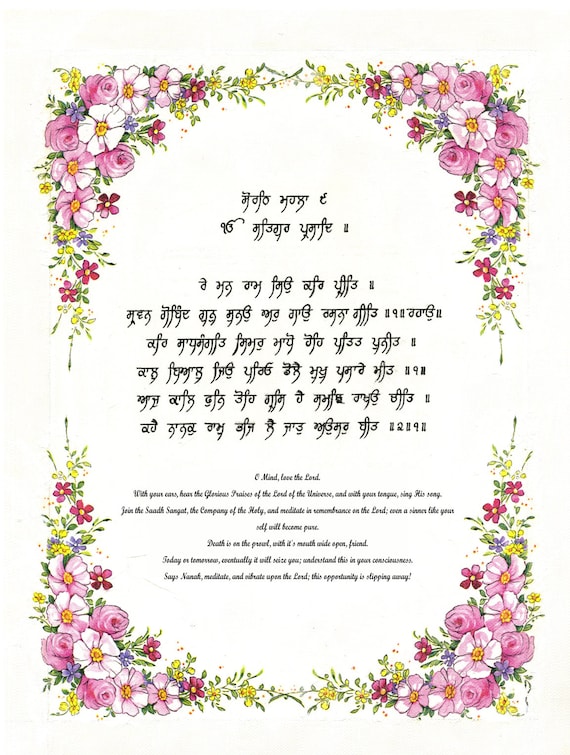 ਸੋਰਠਿ ਮਹਲਾ ੯
ੴ ਸਤਿਗੁਰ ਪ੍ਰਸਾਦਿ ॥
ਰੇ ਮਨ ਰਾਮ ਸਿਉ ਕਰਿ ਪ੍ਰੀਤਿ ॥
ਸ੍ਰਵਨ ਗੋਬਿੰਦ ਗੁਨੁ ਸੁਨਉ ਅਰੁ ਗਾਉ ਰਸਨਾ ਗੀਤਿ ॥੧॥ਰਹਾਉ॥
ਕਰਿ ਸਾਧਸੰਗਤਿ ਸਿਮਰੁ ਮਾਧੋ ਹੋਹਿ ਪਤਿਤ ਪੁਨੀਤ ॥
ਕਾਲੁ ਬਿਆਲੁ ਜਿਉ ਪਰਿਓ ਡੋਲੈ ਮੁਖੁ ਪਸਾਰੇ ਮੀਤ ॥੧॥
ਆਜੁ ਕਾਲਿ ਫੁਨਿ ਤੋਹਿ ਗ੍ਰਸਿ ਹੈ ਸਮਝਿ ਰਾਖਉ ਚੀਤਿ ॥
ਕਹੈ ਨਾਨਕੁ ਰਾਮੁ ਭਜਿ ਲੈ ਜਾਤੁ ਅਉਸਰੁ ਬੀਤ ॥੨॥੧॥
O Mind, love the Lord.
With your ears, hear the Glorious Praises of the Lord of the Universe, and with your tongue, sing His song.
Join the Saadh Sangat, the Company of the Holy, and meditate in remembrance on the Lord; even a sinner like your
self will become pure.
Death is on the prowl, with it's mouth wide open, friend.
Today or tomorrow, eventually it will seize you; understand this in your consciousness.
Says Nanak, meditate, and vibrate upon the Lord; this opportunity is slipping away!